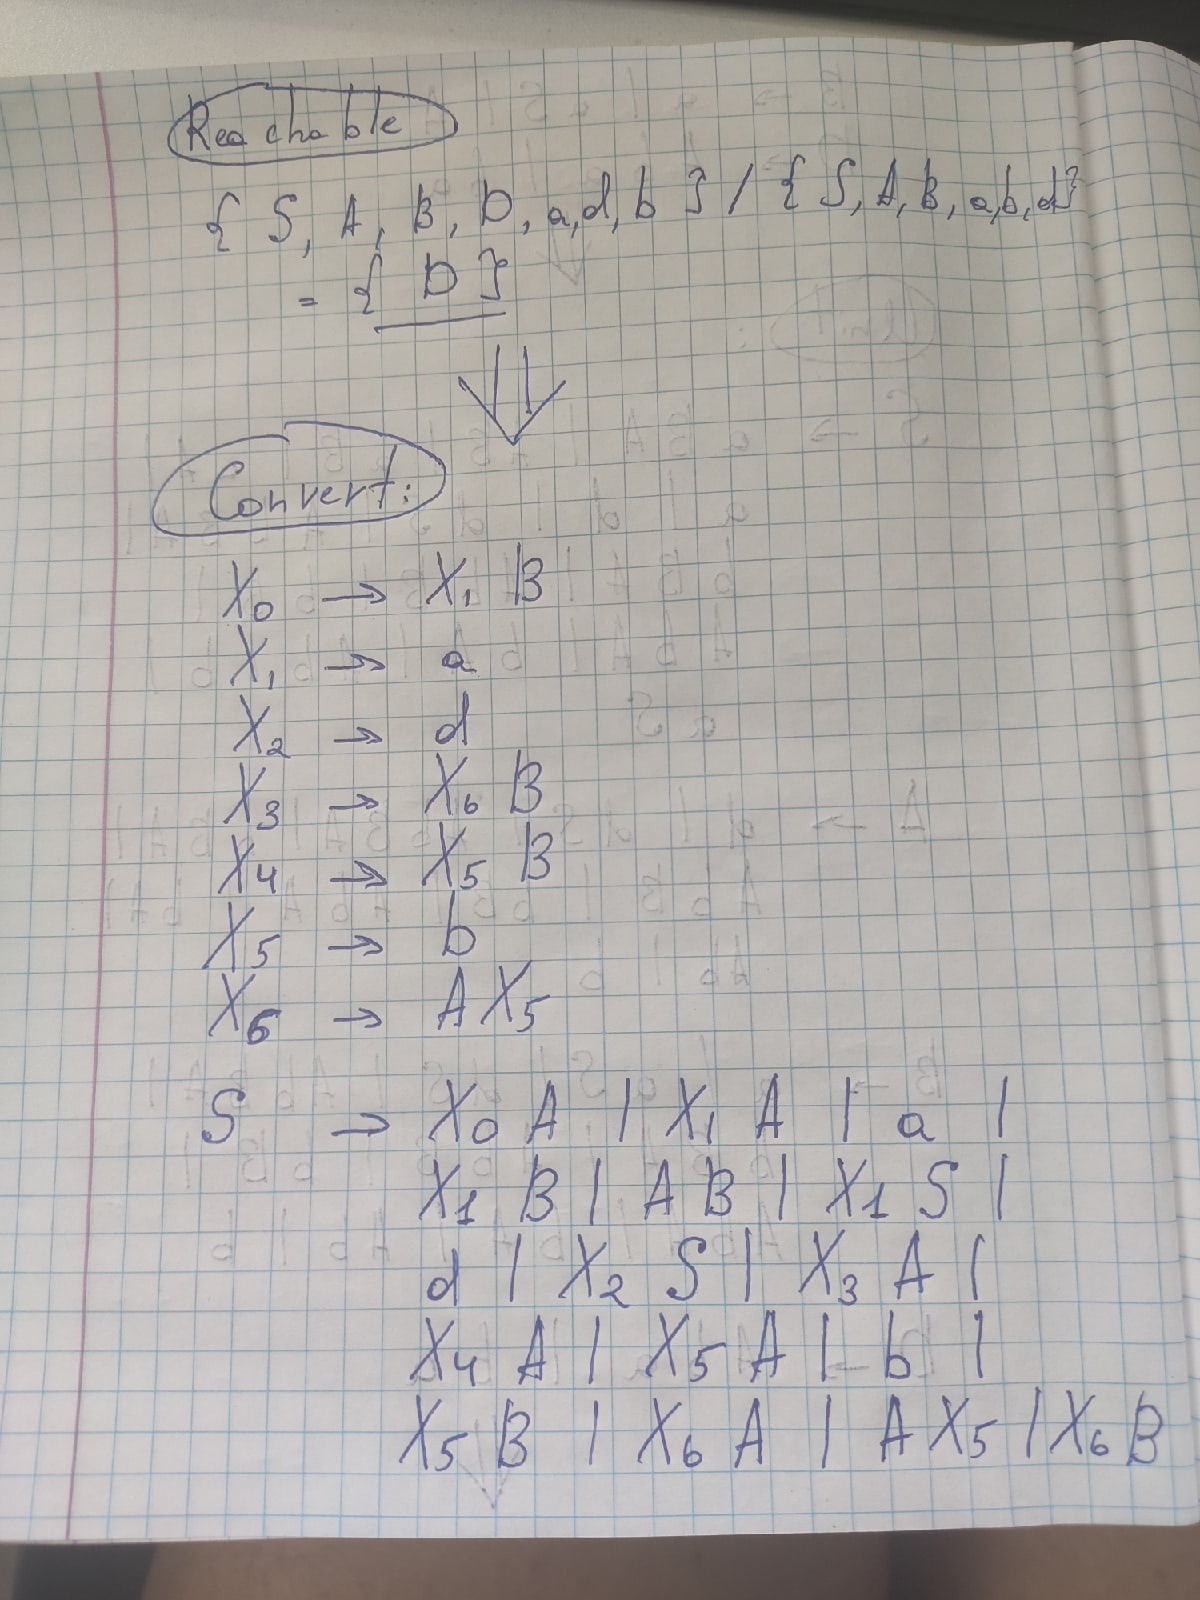 Reachable
{ S, A, B, D, a,d, b } / { S, A, B, a,b, d}
= { D }
Convert:
X₀ → X₁ B
X₁ → a
X₂ → d
X₃ → X₆ B
X₄ → X₅ B
X₅ → b
X₆ → A X₅
S → X₀ A | X₁ A | a |
X₁ B | A B | X₁ S |
d | X₂ S | X₃ A |
X₄ A | X₅ A | b |
X₅ B | X₆ A | A X₅ | X₆ B